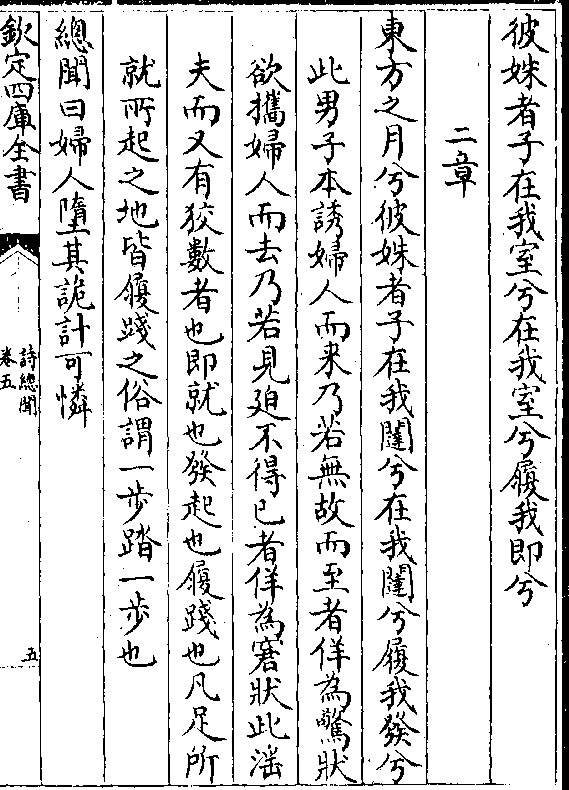 彼姝者子在我室兮在我室兮履我即兮
二章
東方之月兮彼姝者子在我闥兮在我闥兮履我發兮
此男子本誘婦人而来乃若無故而至者佯為驚狀
欲攜婦人而去乃若見廹不得已者佯為窘狀此淫
夫而又有狡數者也即就也發起也履踐也凡足所
就所起之地皆履踐之俗謂一步踏一步也
總聞曰婦人墮其詭計可憐
欽定四庫全書
詩總聞
卷五
五